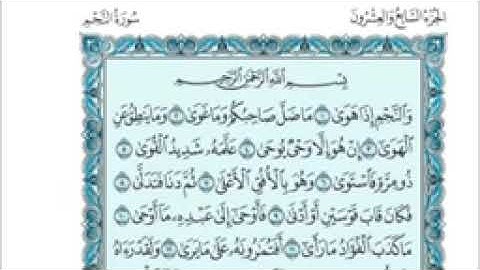 الجزء السابع والعشرون
سورة النجم
بِسْمِ اللَّهِ الرَّحْمَٰنِ الرَّحِيمِ
وَالنَّجْمِ إِذَا هَوَىٰ ۝١ مَا ضَلَّ صَاحِبُكُمْ وَمَا غَوَىٰ ۝٢ وَمَا يَنطِقُ عَنِ
الْهَوَىٰ ۝٣ إِنْ هُوَ إِلَّا وَحْيٌ يُوحَىٰ ۝٤ عَلَّمَهُ شَدِيدُ الْقُوَىٰ ۝٥
ذُو مِرَّةٍ فَاسْتَوَىٰ ۝٦ وَهُوَ بِالْأُفُقِ الْأَعْلَىٰ ۝٧ ثُمَّ دَنَا فَتَدَلَّىٰ ۝٨
فَكَانَ قَابَ قَوْسَيْنِ أَوْ أَدْنَىٰ ۝٩ فَأَوْحَىٰ إِلَىٰ عَبْدِهِ مَا أَوْحَىٰ ۝١٠
مَا كَذَبَ الْفُؤَادُ مَا رَأَىٰ ۝١١ أَفَتُمَارُونَهُ عَلَىٰ مَا يَرَىٰ ۝١٢ وَلَقَدْ رَآهُ